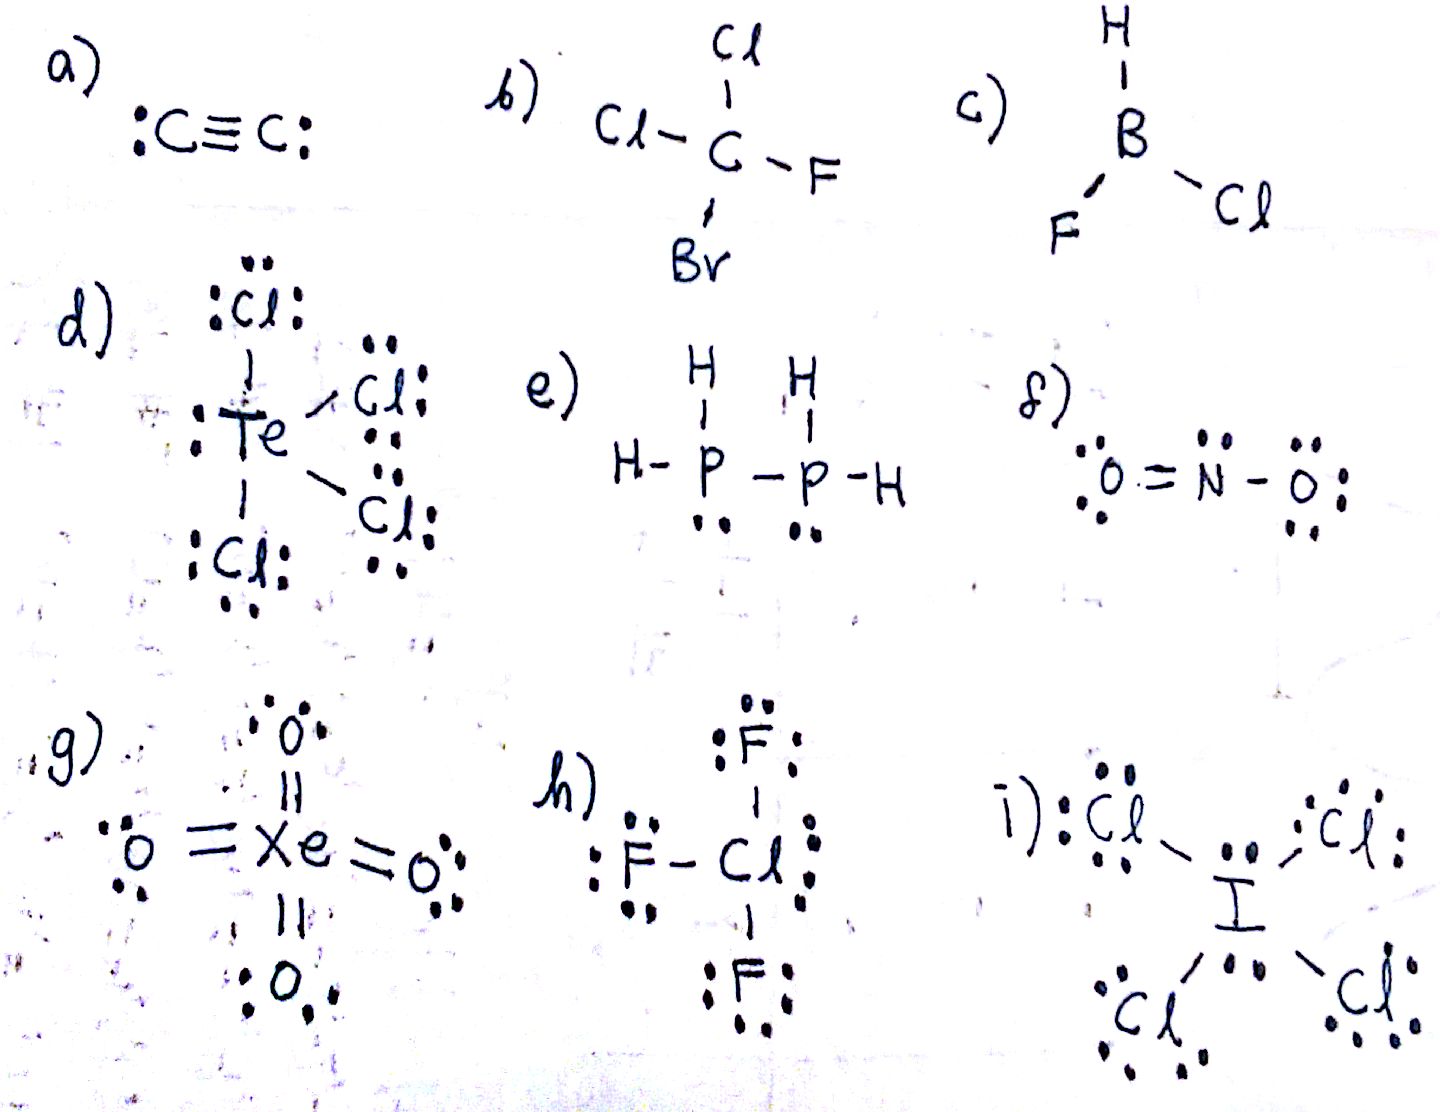 a) :C≡C:
b) Cl Cl C F Br
c) H B F Cl
d) :Cl: :Te Cl: Cl: :Cl:
e) H H H-P-P-H
f) O=N-O:
g) O O=Xe=O :O
h) :F: :F-Cl: :F:
i) :Cl Cl: I Cl Cl